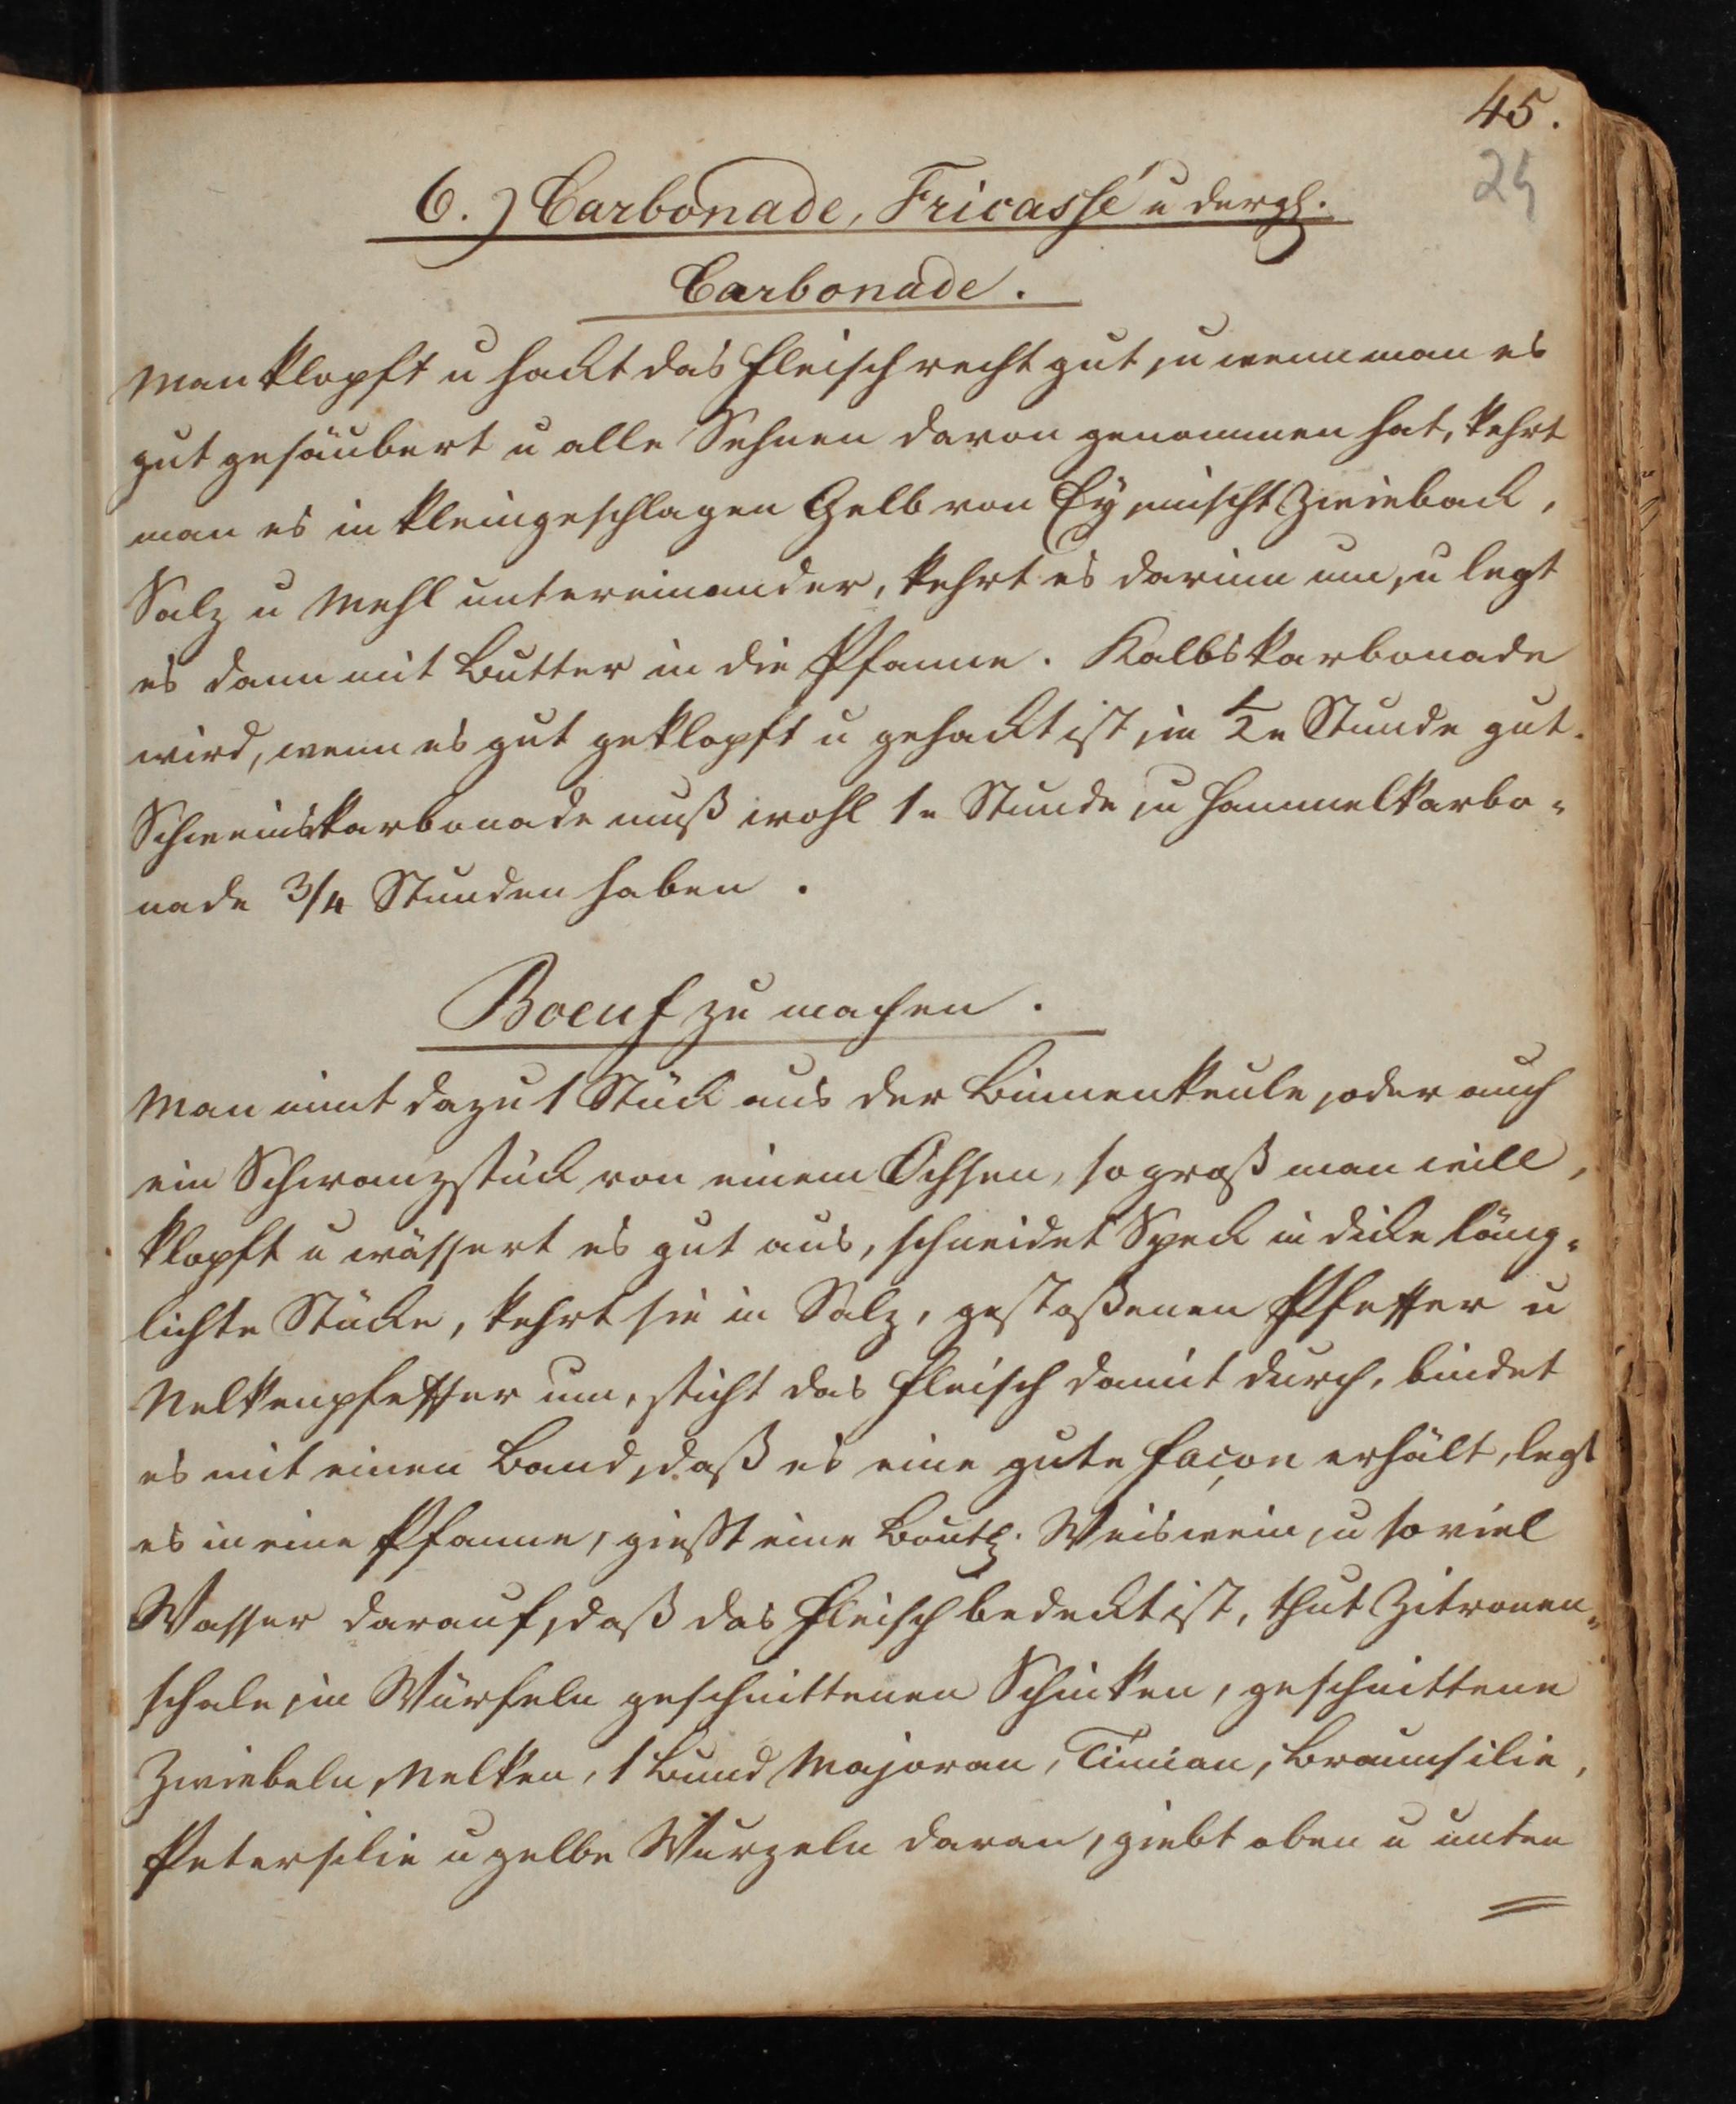 45.
25
6.) Carbonade, Fricassé u dergl.
Carbonade.
Man klopft u hackt das Fleisch recht gut, u wenn man es
gut gesäubert u alle Sehnen davon genommen hat, kehrt
man es in kleingeschlagen Gelb von Ey, mischt Zwieback,
Salz u Mehl untereinander, kehrt es darinn um, u legt
es dann mit Butter in die Pfanne. Kalbskarbonade
wird, wenn es gut geklopft u gehackt ist, in 1/2e Stunde gut.
Schweinskarbonade muß wohl 1e Stunde, u Hammelkarbo-
nade 3/4 Stunden haben.
Boeuf zu machen.
Man nimt dazu 1 Stück aus der Binnenkeule, oder auch
ein Schwanzstück von einem Ochsen, so groß man will,
klopft u wässert es gut aus, schneidet Speck in dicke läng-
lichte Stücke, kehrt sie in Salz, gestoßenen Pfeffer u
Nelkenpfeffer um, sticht das Fleisch damit durch, bindet
es mit einen Band, daß es eine gute façon erhält, legt
es in eine Pfanne, gießt eine Boutl. Weiswein, u so viel
Wasser darauf, daß das Fleisch bedeckt ist, thut Zitronen-
schale, in Würfeln geschnittenen Schinken, geschnittene
Zwiebeln, Nelken, 1 Bund Majoran, Timian, Braunsilie,
Petersilie u gelbe Wurzeln daran, giebt oben u unten